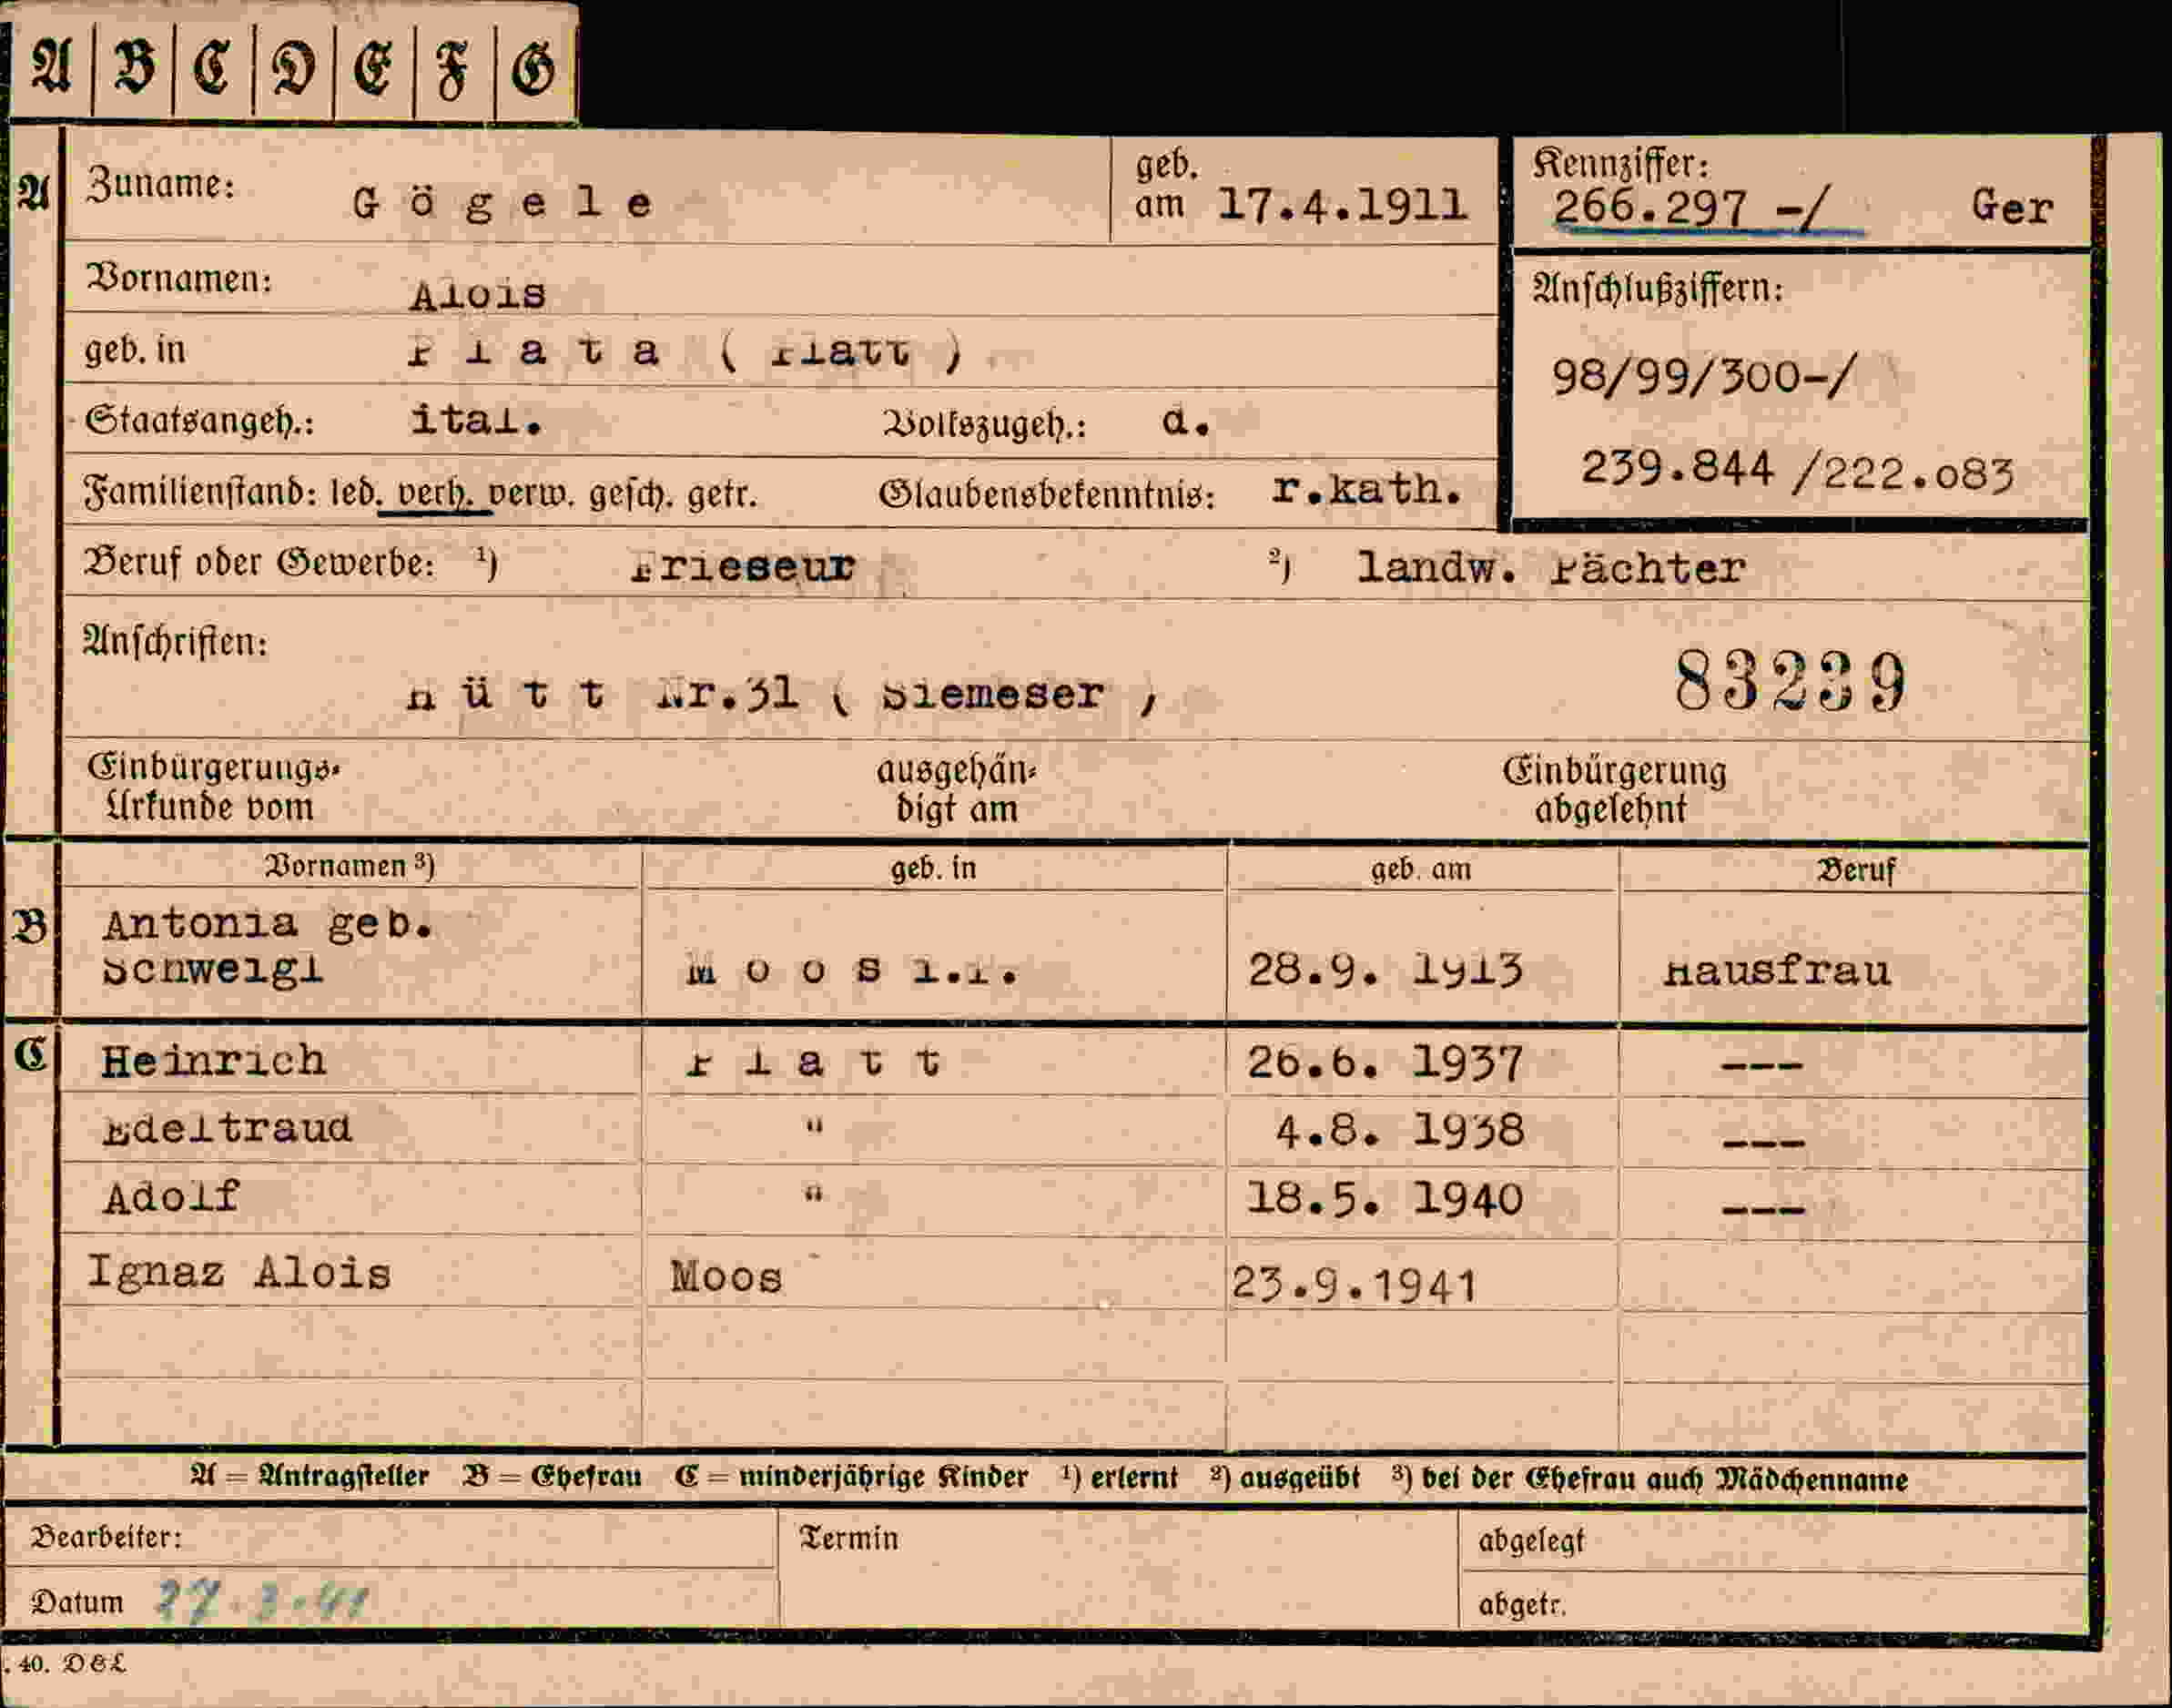 A B C D E F G
A Zuname: Gögele geb. am 17.4.1911 Kennziffer: 266.297 -/ Ger
Vornamen: Alois Anschlußziffern:
geb. in Plata ( Platt ) 98/99/300-/
Staatsangeh.: ital. Volkszugeh.: d.
239.844 /222.083
Familienstand: led. verh. verw. gesch. getr. Glaubensbekenntnis: r.kath.
Beruf oder Gewerbe: ¹) Frieseur ²) landw. Pächter
Anschriften:
Hütt Nr.31 ( Siemeser ) 83239
Einbürgerungs-Urkunde vom ausgehändigt am Einbürgerung abgelehnt
Vornamen ³) geb. in geb. am Beruf
B Antonia geb.
Schweigl Moos i.P. 28.9. 1913 Hausfrau
C Heinrich Platt 26.6. 1937 ---
Edeltraud " 4.8. 1938 ---
Adolf " 18.5. 1940 ---
Ignaz Alois Moos 23.9.1941
A = Antragsteller B = Ehefrau C = minderjährige Kinder ¹) erlernt ²) ausgeübt ³) bei der Ehefrau auch Mädchenname
Bearbeiter: Termin abgelegt
Datum 27.3.41 abgetr.
. 40. D&L